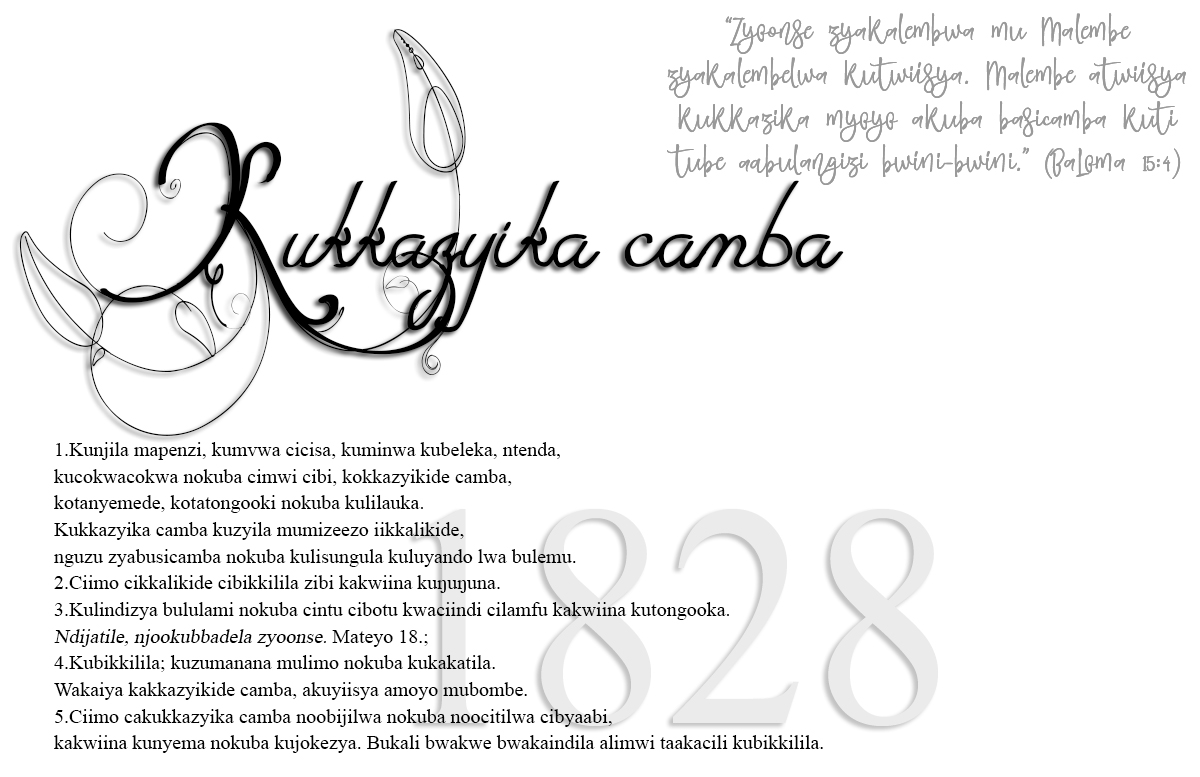 “Zyoonse zyakalembwa mu Malembe
zyakalembelwa kutwiisya. Malembe atwiisya
kukkazika myoyo akuba basicamba kuti
tube aabulangizi bwini-bwini.” (BaLoma 15:4)
Kukkazyika camba
1.Kunjila mapenzi, kumvwa cicisa, kuminwa kubeleka, ntenda,
kucokwacokwa nokuba cimwi cibi, kokkazyikide camba,
kotanyemede, kotatongooki nokuba kulilauka.
Kukkazyika camba kuzyila mumizeezo iikkalikide,
nguzu zyabusicamba nokuba kulisungula kuluyando lwa bulemu.
2.Ciimo cikkalikide cibikkilila zibi kakwiina kuŋuŋuna.
3.Kulindizya bululami nokuba cintu cibotu kwaciindi cilamfu kakwiina kutongooka.
Ndijatile, njookubbadela zyoonse. Mateyo 18.;
4.Kubikkilila; kuzumanana mulimo nokuba kukakatila.
Wakaiya kakkazyikide camba, akuyiisya amoyo mubombe.
5.Ciimo cakukkazyika camba noobijilwa nokuba noocitilwa cibyaabi,
kakwiina kunyema nokuba kujokezya. Bukali bwakwe bwakaindila alimwi taakacili kubikkilila.
1828